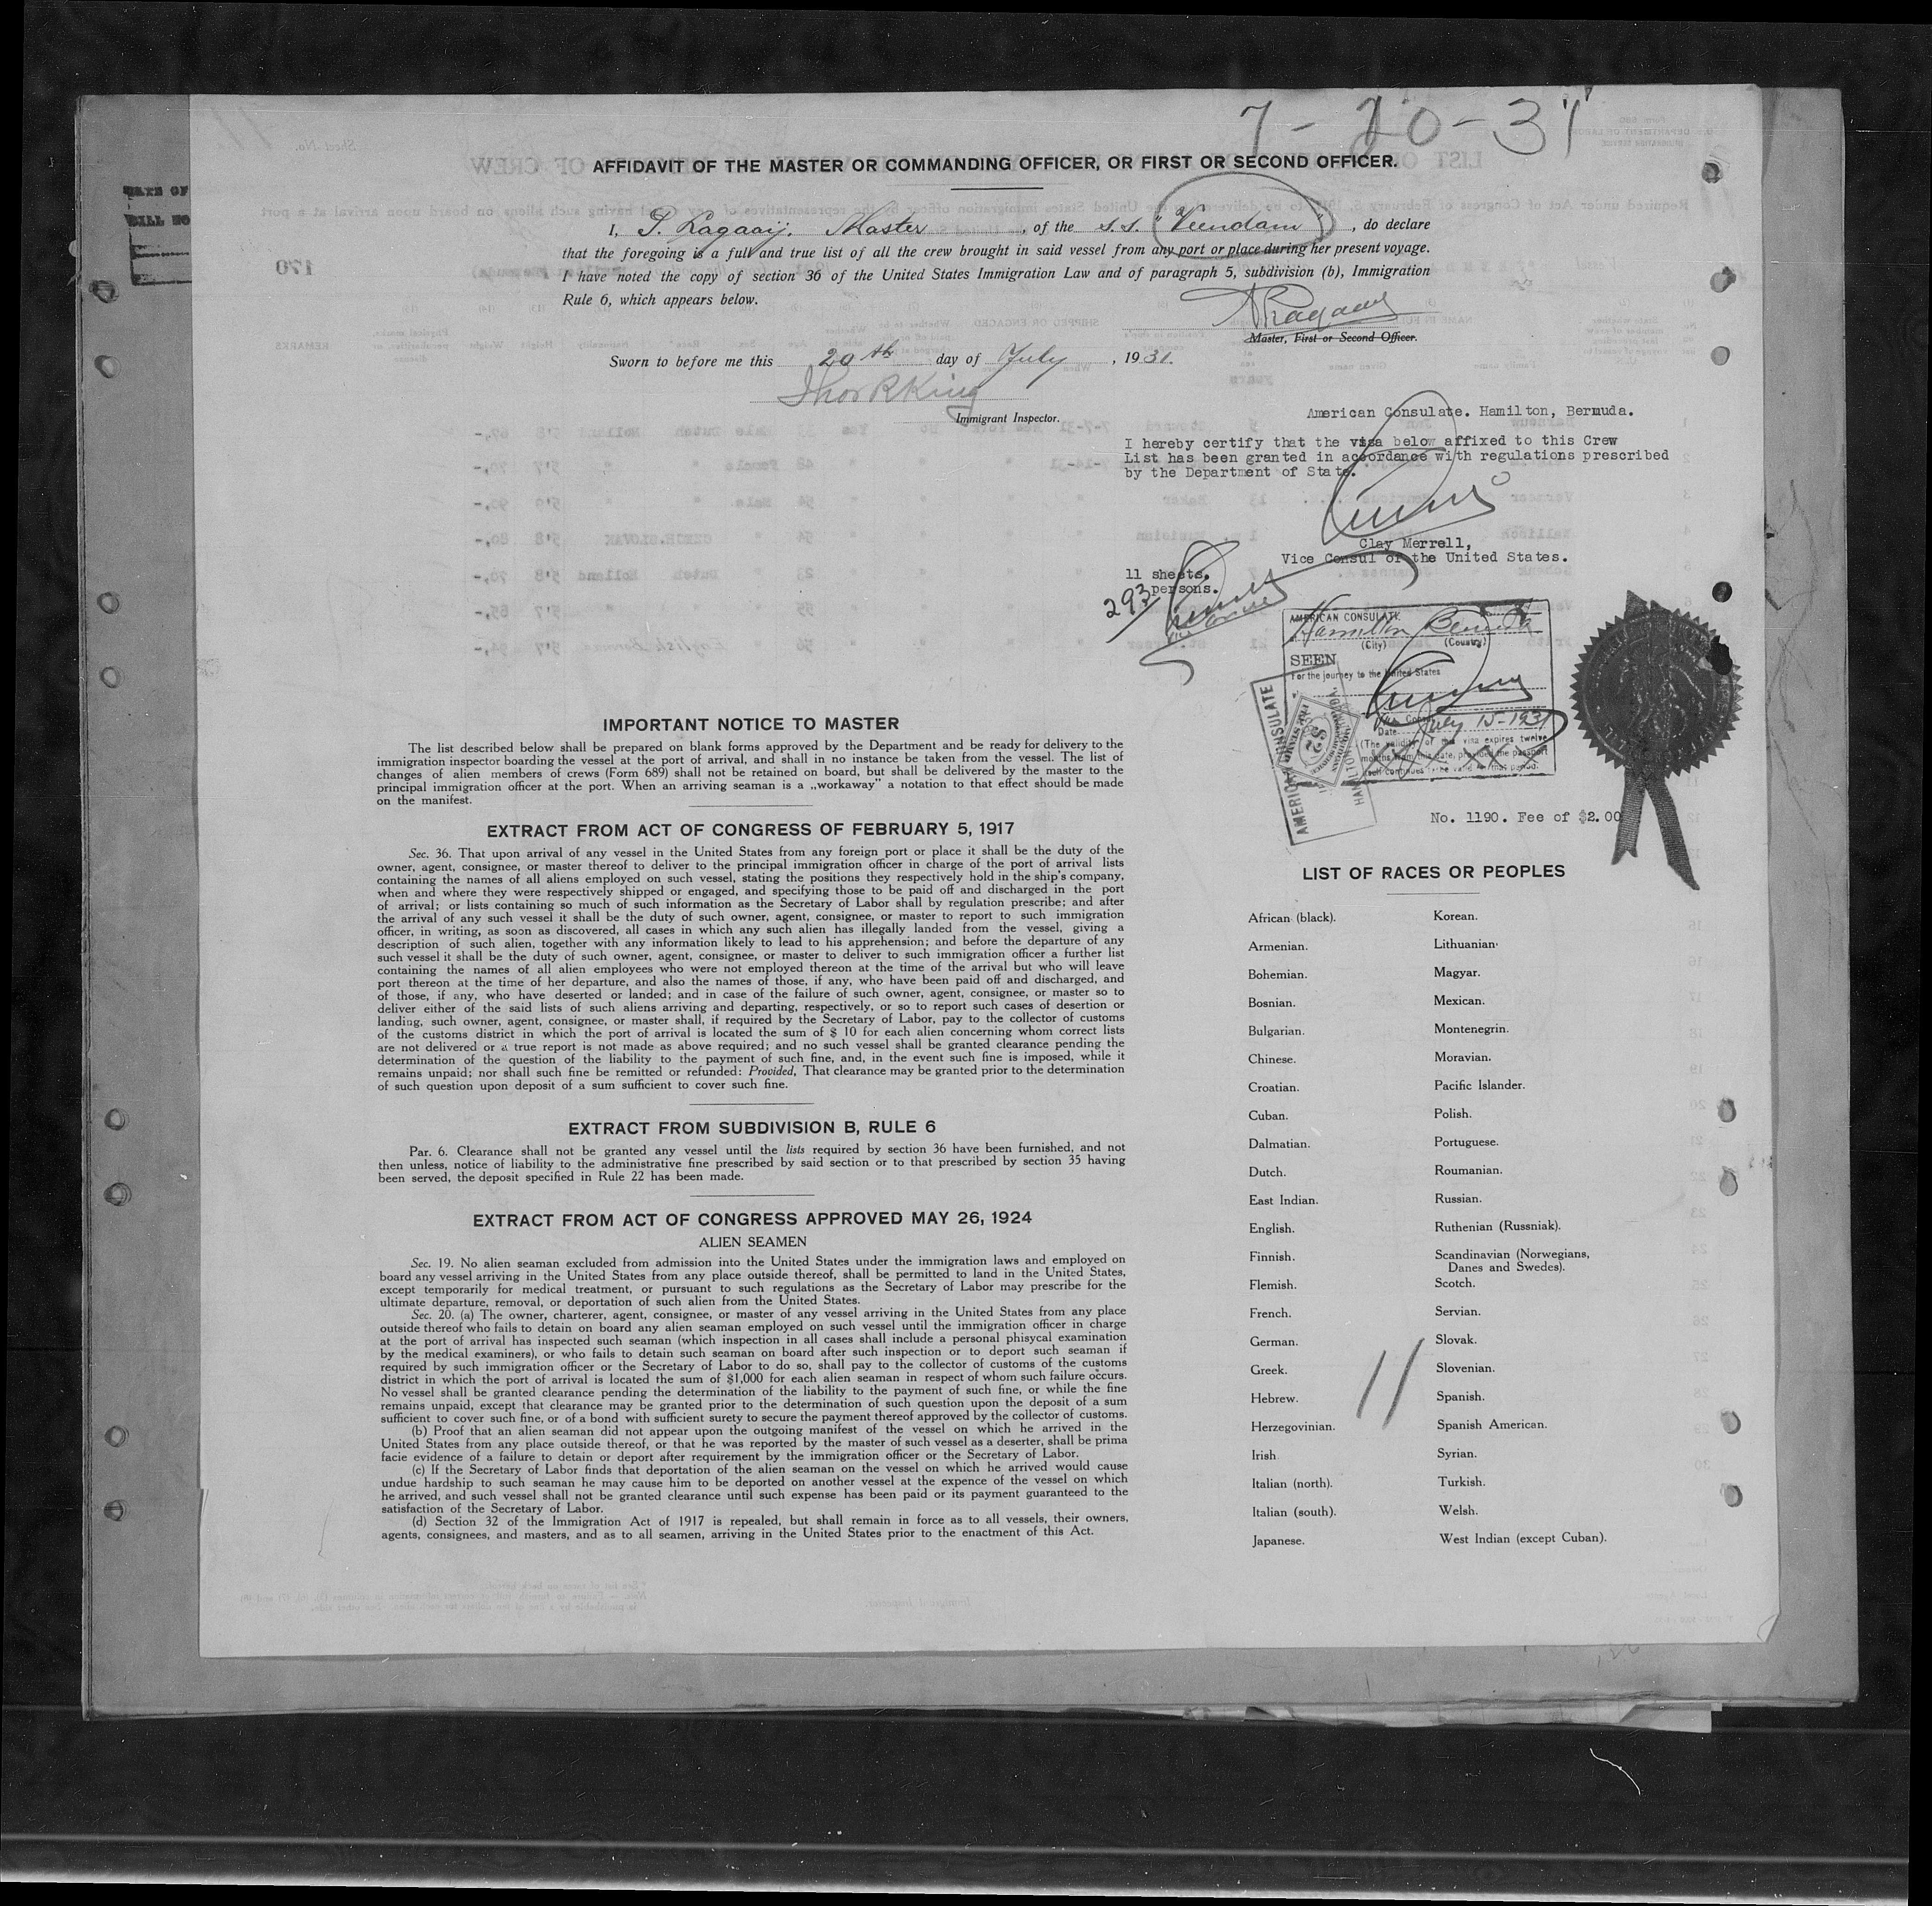 7-20-31
AFFIDAVIT OF THE MASTER OR COMMANDING OFFICER, OR FIRST OR SECOND OFFICER.
I, P. Ragaaij. Master, of the s.s. "Veendam", do declare
that the foregoing is a full and true list of all the crew brought in said vessel from any port or place during her present voyage.
I have noted the copy of section 36 of the United States Immigration Law and of paragraph 5, subdivision (b), Immigration
Rule 6, which appears below.
Ragaaij
Master, First or Second Officer.
Sworn to before me this 20th day of July, 1931.
Thos R King
Immigrant Inspector.
American Consulate. Hamilton, Bermuda.
I hereby certify that the visa below affixed to this Crew
List has been granted in accordance with regulations prescribed
by the Department of State.
Clay Merrell,
Vice Consul of the United States.
11 sheets.
293 persons.
AMERICAN CONSULATE
Hamilton Bermuda
(City) (Country)
SEEN
For the journey to the United States
Vice Consul
Date July 15-1931
(The validity of this visa expires twelve
months from this date, provided the passport
itself continues to be valid for that period.
AMERICAN CONSULATE
No. 1190. Fee of $2.00
IMPORTANT NOTICE TO MASTER
The list described below shall be prepared on blank forms approved by the Department and be ready for delivery to the
immigration inspector boarding the vessel at the port of arrival, and shall in no instance be taken from the vessel. The list of
changes of alien members of crews (Form 689) shall not be retained on board, but shall be delivered by the master to the
principal immigration officer at the port. When an arriving seaman is a „workaway" a notation to that effect should be made
on the manifest.
EXTRACT FROM ACT OF CONGRESS OF FEBRUARY 5, 1917
Sec. 36. That upon arrival of any vessel in the United States from any foreign port or place it shall be the duty of the
owner, agent, consignee, or master thereof to deliver to the principal immigration officer in charge of the port of arrival lists
containing the names of all aliens employed on such vessel, stating the positions they respectively hold in the ship's company,
when and where they were respectively shipped or engaged, and specifying those to be paid off and discharged in the port
of arrival; or lists containing so much of such information as the Secretary of Labor shall by regulation prescribe; and after
the arrival of any such vessel it shall be the duty of such owner, agent, consignee, or master to report to such immigration
officer, in writing, as soon as discovered, all cases in which any such alien has illegally landed from the vessel, giving a
description of such alien, together with any information likely to lead to his apprehension; and before the departure of any
such vessel it shall be the duty of such owner, agent, consignee, or master to deliver to such immigration officer a further list
containing the names of all alien employees who were not employed thereon at the time of the arrival but who will leave
port thereon at the time of her departure, and also the names of those, if any, who have been paid off and discharged, and
of those, if any, who have deserted or landed; and in case of the failure of such owner, agent, consignee, or master so to
deliver either of the said lists of such aliens arriving and departing, respectively, or so to report such cases of desertion or
landing, such owner, agent, consignee, or master shall, if required by the Secretary of Labor, pay to the collector of customs
of the customs district in which the port of arrival is located the sum of $ 10 for each alien concerning whom correct lists
are not delivered or a true report is not made as above required; and no such vessel shall be granted clearance pending the
determination of the question of the liability to the payment of such fine, and, in the event such fine is imposed, while it
remains unpaid; nor shall such fine be remitted or refunded: Provided, That clearance may be granted prior to the determination
of such question upon deposit of a sum sufficient to cover such fine.
EXTRACT FROM SUBDIVISION B, RULE 6
Par. 6. Clearance shall not be granted any vessel until the lists required by section 36 have been furnished, and not
then unless, notice of liability to the administrative fine prescribed by said section or to that prescribed by section 35 having
been served, the deposit specified in Rule 22 has been made.
EXTRACT FROM ACT OF CONGRESS APPROVED MAY 26, 1924
ALIEN SEAMEN
Sec. 19. No alien seaman excluded from admission into the United States under the immigration laws and employed on
board any vessel arriving in the United States from any place outside thereof, shall be permitted to land in the United States,
except temporarily for medical treatment, or pursuant to such regulations as the Secretary of Labor may prescribe for the
ultimate departure, removal, or deportation of such alien from the United States.
Sec. 20. (a) The owner, charterer, agent, consignee, or master of any vessel arriving in the United States from any place
outside thereof who fails to detain on board any alien seaman employed on such vessel until the immigration officer in charge
at the port of arrival has inspected such seaman (which inspection in all cases shall include a personal phisycal examination
by the medical examiners), or who fails to detain such seaman on board after such inspection or to deport such seaman if
required by such immigration officer or the Secretary of Labor to do so, shall pay to the collector of customs of the customs
district in which the port of arrival is located the sum of $1,000 for each alien seaman in respect of whom such failure occurs.
No vessel shall be granted clearance pending the determination of the liability to the payment of such fine, or while the fine
remains unpaid, except that clearance may be granted prior to the determination of such question upon the deposit of a sum
sufficient to cover such fine, or of a bond with sufficient surety to secure the payment thereof approved by the collector of customs.
(b) Proof that an alien seaman did not appear upon the outgoing manifest of the vessel on which he arrived in the
United States from any place outside thereof, or that he was reported by the master of such vessel as a deserter, shall be prima
facie evidence of a failure to detain or deport after requirement by the immigration officer or the Secretary of Labor.
(c) If the Secretary of Labor finds that deportation of the alien seaman on the vessel on which he arrived would cause
undue hardship to such seaman he may cause him to be deported on another vessel at the expence of the vessel on which
he arrived, and such vessel shall not be granted clearance until such expense has been paid or its payment guaranteed to the
satisfaction of the Secretary of Labor.
(d) Section 32 of the Immigration Act of 1917 is repealed, but shall remain in force as to all vessels, their owners,
agents, consignees, and masters, and as to all seamen, arriving in the United States prior to the enactment of this Act.
LIST OF RACES OR PEOPLES
African (black).
Armenian.
Bohemian.
Bosnian.
Bulgarian.
Chinese.
Croatian.
Cuban.
Dalmatian.
Dutch.
East Indian.
English.
Finnish.
Flemish.
French.
German.
Greek.
Hebrew.
Herzegovinian.
Irish
Italian (north).
Italian (south).
Japanese.
Korean.
Lithuanian.
Magyar.
Mexican.
Montenegrin.
Moravian.
Pacific Islander.
Polish.
Portuguese.
Roumanian.
Russian.
Ruthenian (Russniak).
Scandinavian (Norwegians,
Danes and Swedes).
Scotch.
Servian.
Slovak.
Slovenian.
Spanish.
Spanish American.
Syrian.
Turkish.
Welsh.
West Indian (except Cuban).
11